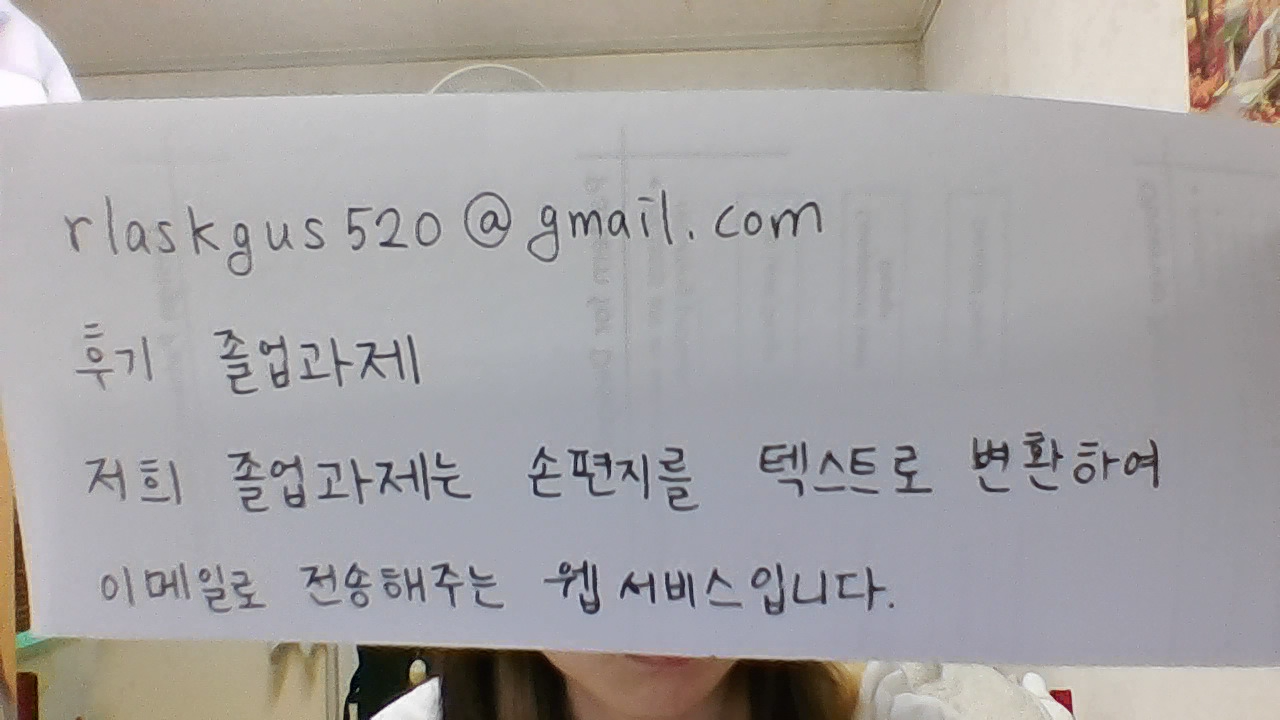 rlaskgus520@gmail.com
후기 졸업과제
저희 졸업과제는 손편지를 텍스트로 변환하여
이메일로 전송해주는 웹서비스입니다.